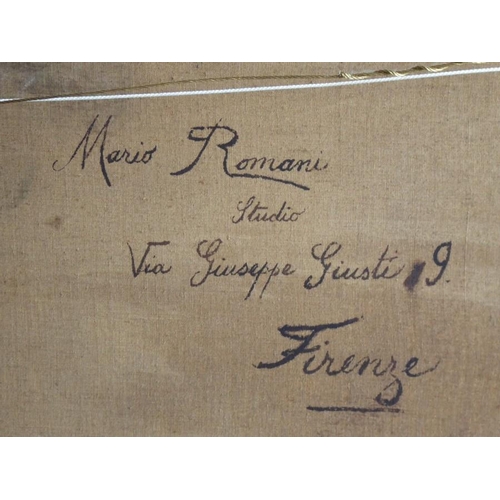 Mario Romani
Studio
Via Giuseppe Giusti 9.
Firenze